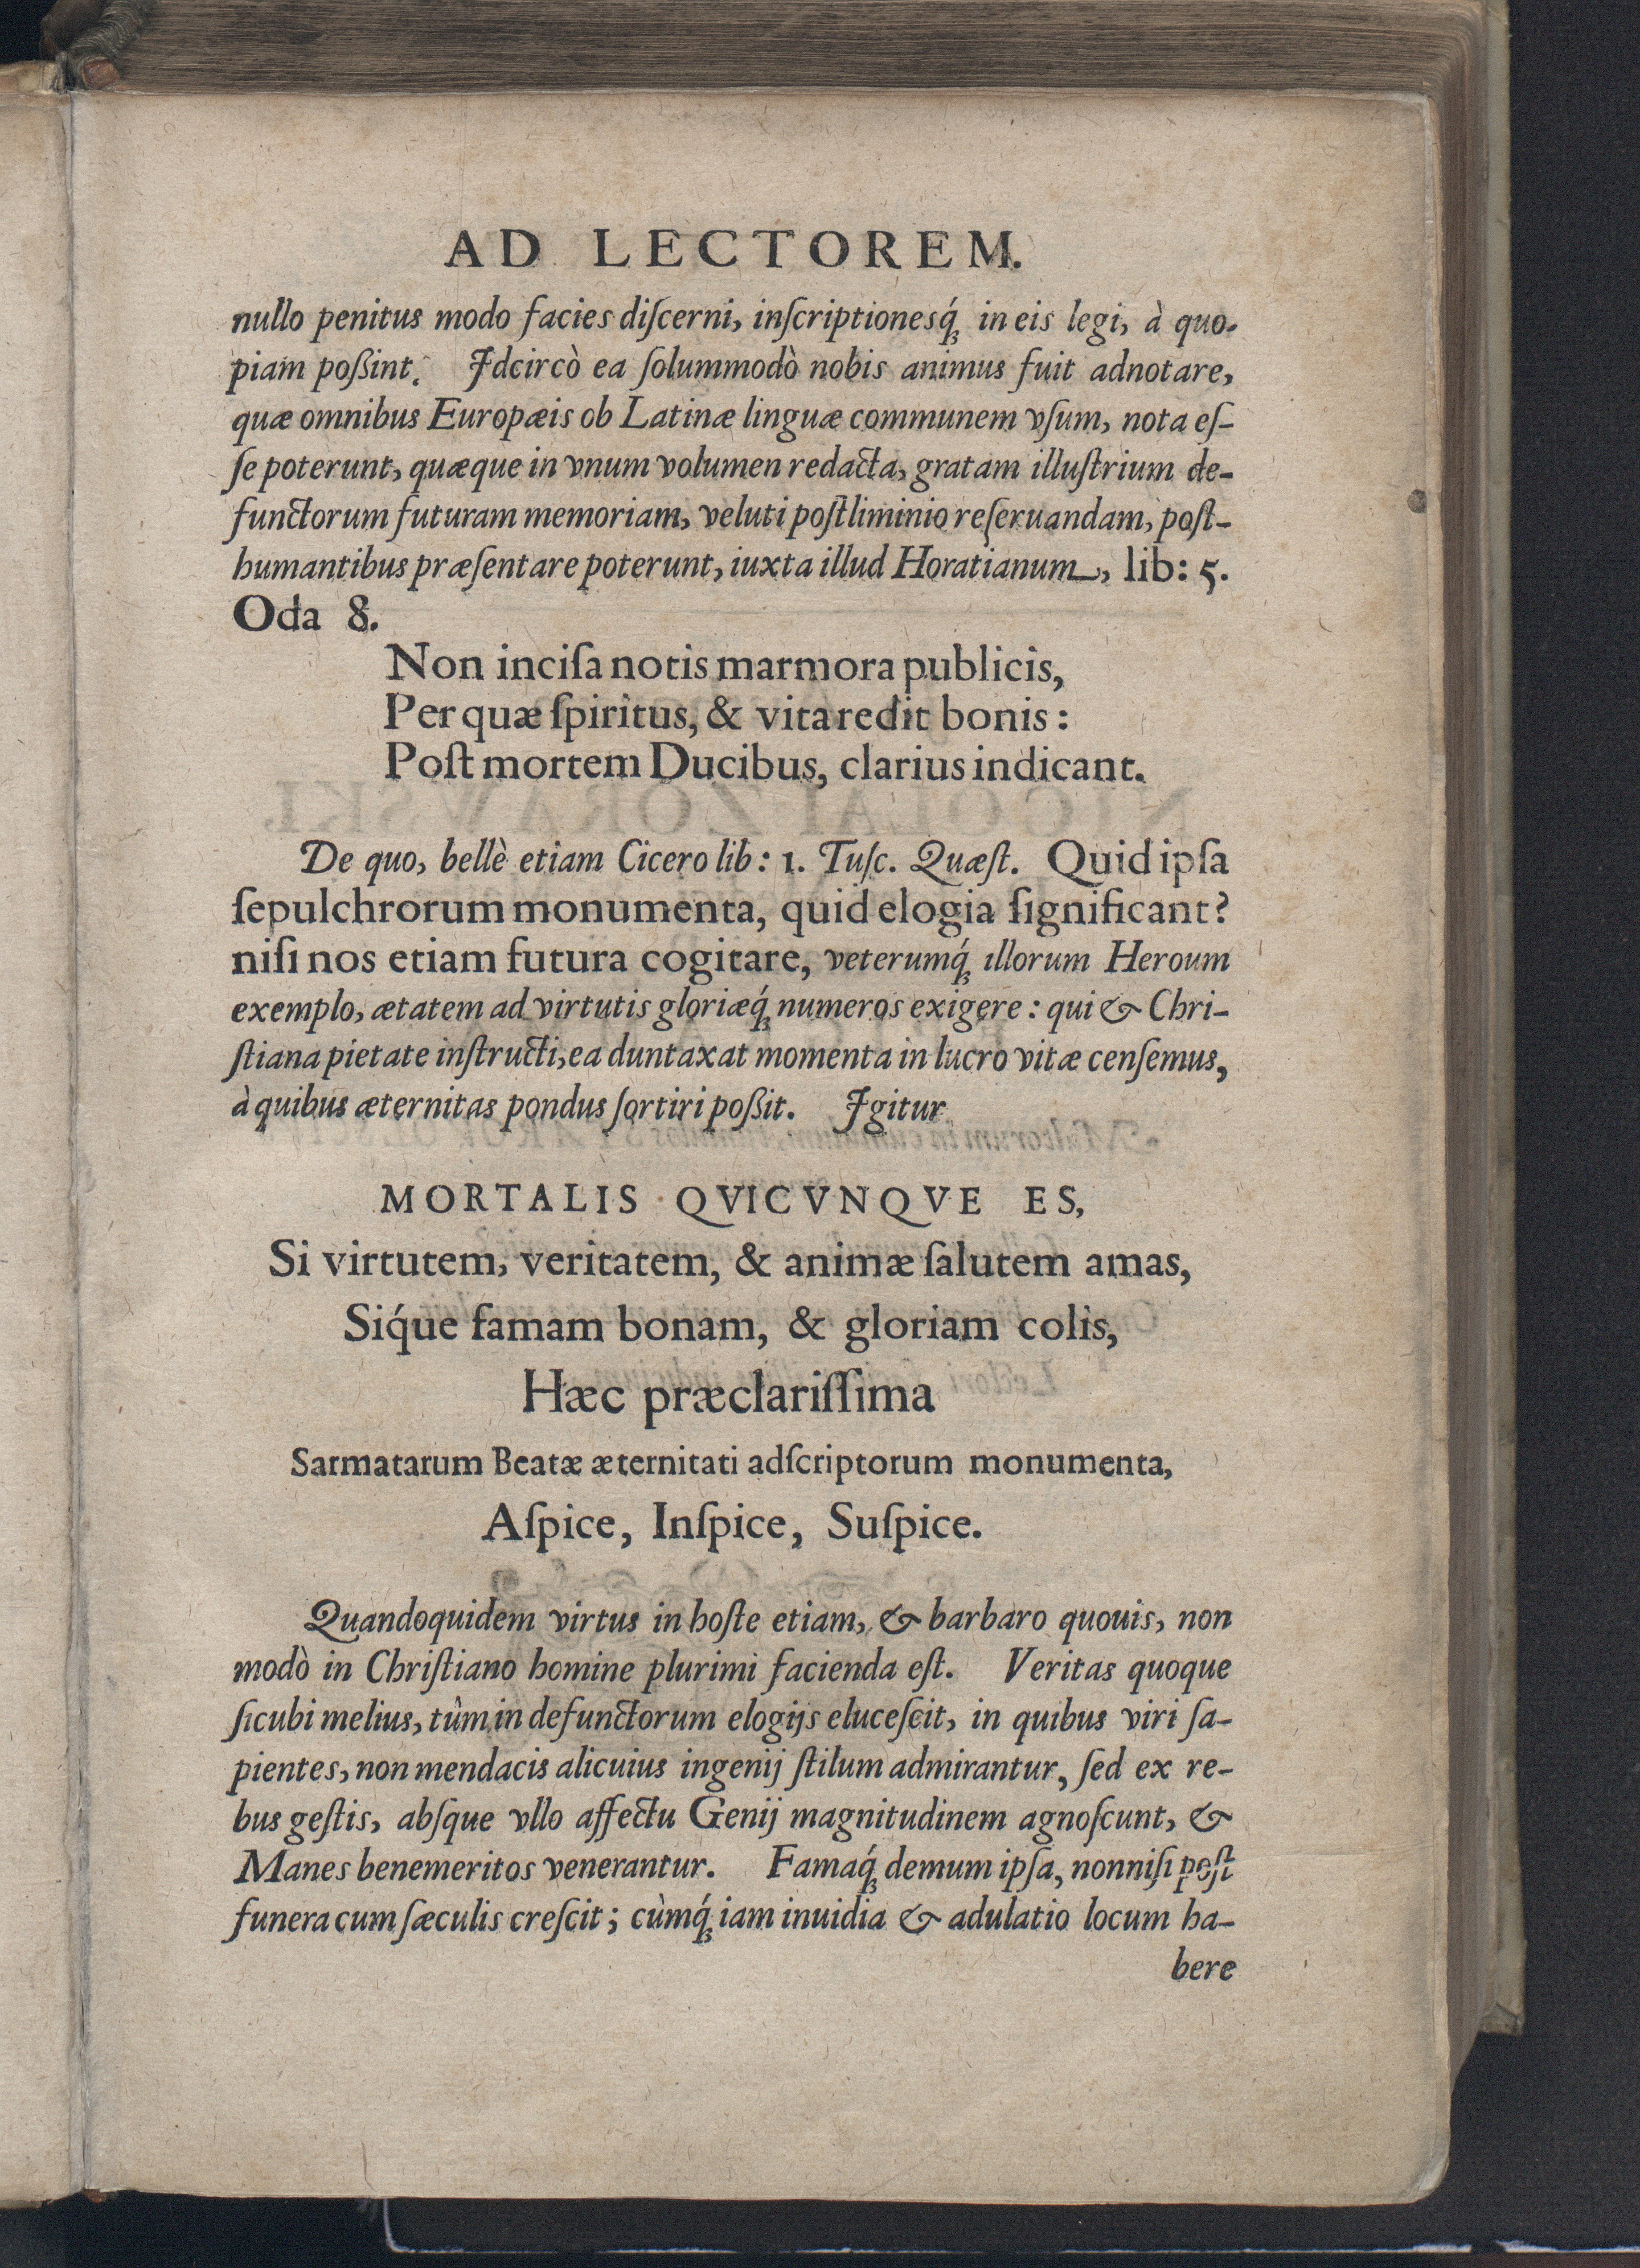 AD LECTOREM.
nullo penitus modo facies diſcerni, inſcriptionesq́ꝫ in eis legi, à quo-
piam poßint. Idcircò ea ſolummodò nobis animus fuit adnotare,
quæ omnibus Europæis ob Latinæ linguæ communem vſum, nota eſ-
ſe poterunt, quæque in vnum volumen redacta, gratam illuſtrium de-
functorum futuram memoriam, veluti poſtliminio reſeruandam, poſt-
humantibus præſentare poterunt, iuxta illud Horatianum, lib: 5.
Oda 8.
Non inciſa notis marmora publicis,
Per quæ ſpiritus, & vita redit bonis:
Poſt mortem Ducibus, clarius indicant.
De quo, bellè etiam Cicero lib: 1. Tuſc. Quæſt. Quid ipſa
ſepulchrorum monumenta, quid elogia ſignificant?
niſi nos etiam futura cogitare, veterumq́ꝫ illorum Heroum
exemplo, ætatem ad virtutis gloriæq́ꝫ numeros exigere: qui & Chri-
ſtiana pietate inſtructi, ea duntaxat momenta in lucro vitæ cenſemus,
à quibus æternitas pondus ſortiri poßit. Igitur
MORTALIS QVICVNQVE ES,
Si virtutem, veritatem, & animæ ſalutem amas,
Siq́ue famam bonam, & gloriam colis,
Hæc præclariſſima
Sarmatarum Beatæ æternitati adſcriptorum monumenta,
Aſpice, Inſpice, Suſpice.
Quandoquidem virtus in hoſte etiam, & barbaro quouis, non
modò in Chriſtiano homine plurimi facienda eſt. Veritas quoque
ſicubi melius, tùm in defunctorum elogijs eluceſcit, in quibus viri ſa-
pientes, non mendacis alicuius ingenij ſtilum admirantur, ſed ex re-
bus geſtis, abſque vllo affectu Genij magnitudinem agnoſcunt, &
Manes benemeritos venerantur. Famaq́ꝫ demum ipſa, nonniſi poſt
funera cum ſæculis creſcit; cùmq́ꝫ iam inuidia & adulatio locum ha-
bere